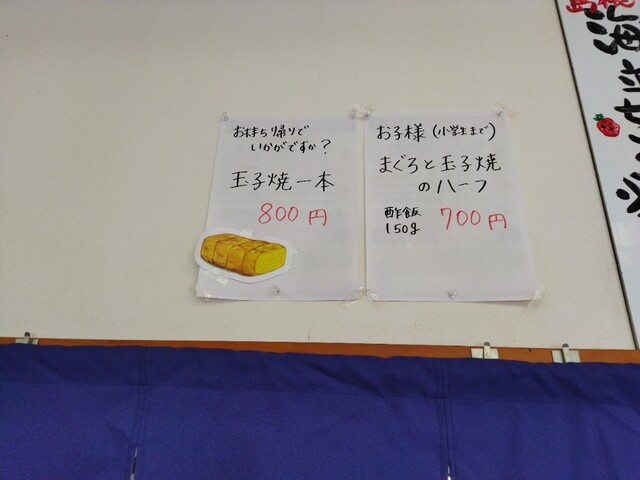 お持ち帰りで
いかがですか?
玉子焼一本
800円
お子様(小学生まで)
まぐろと玉子焼
のハーフ
酢飯
150g
700円